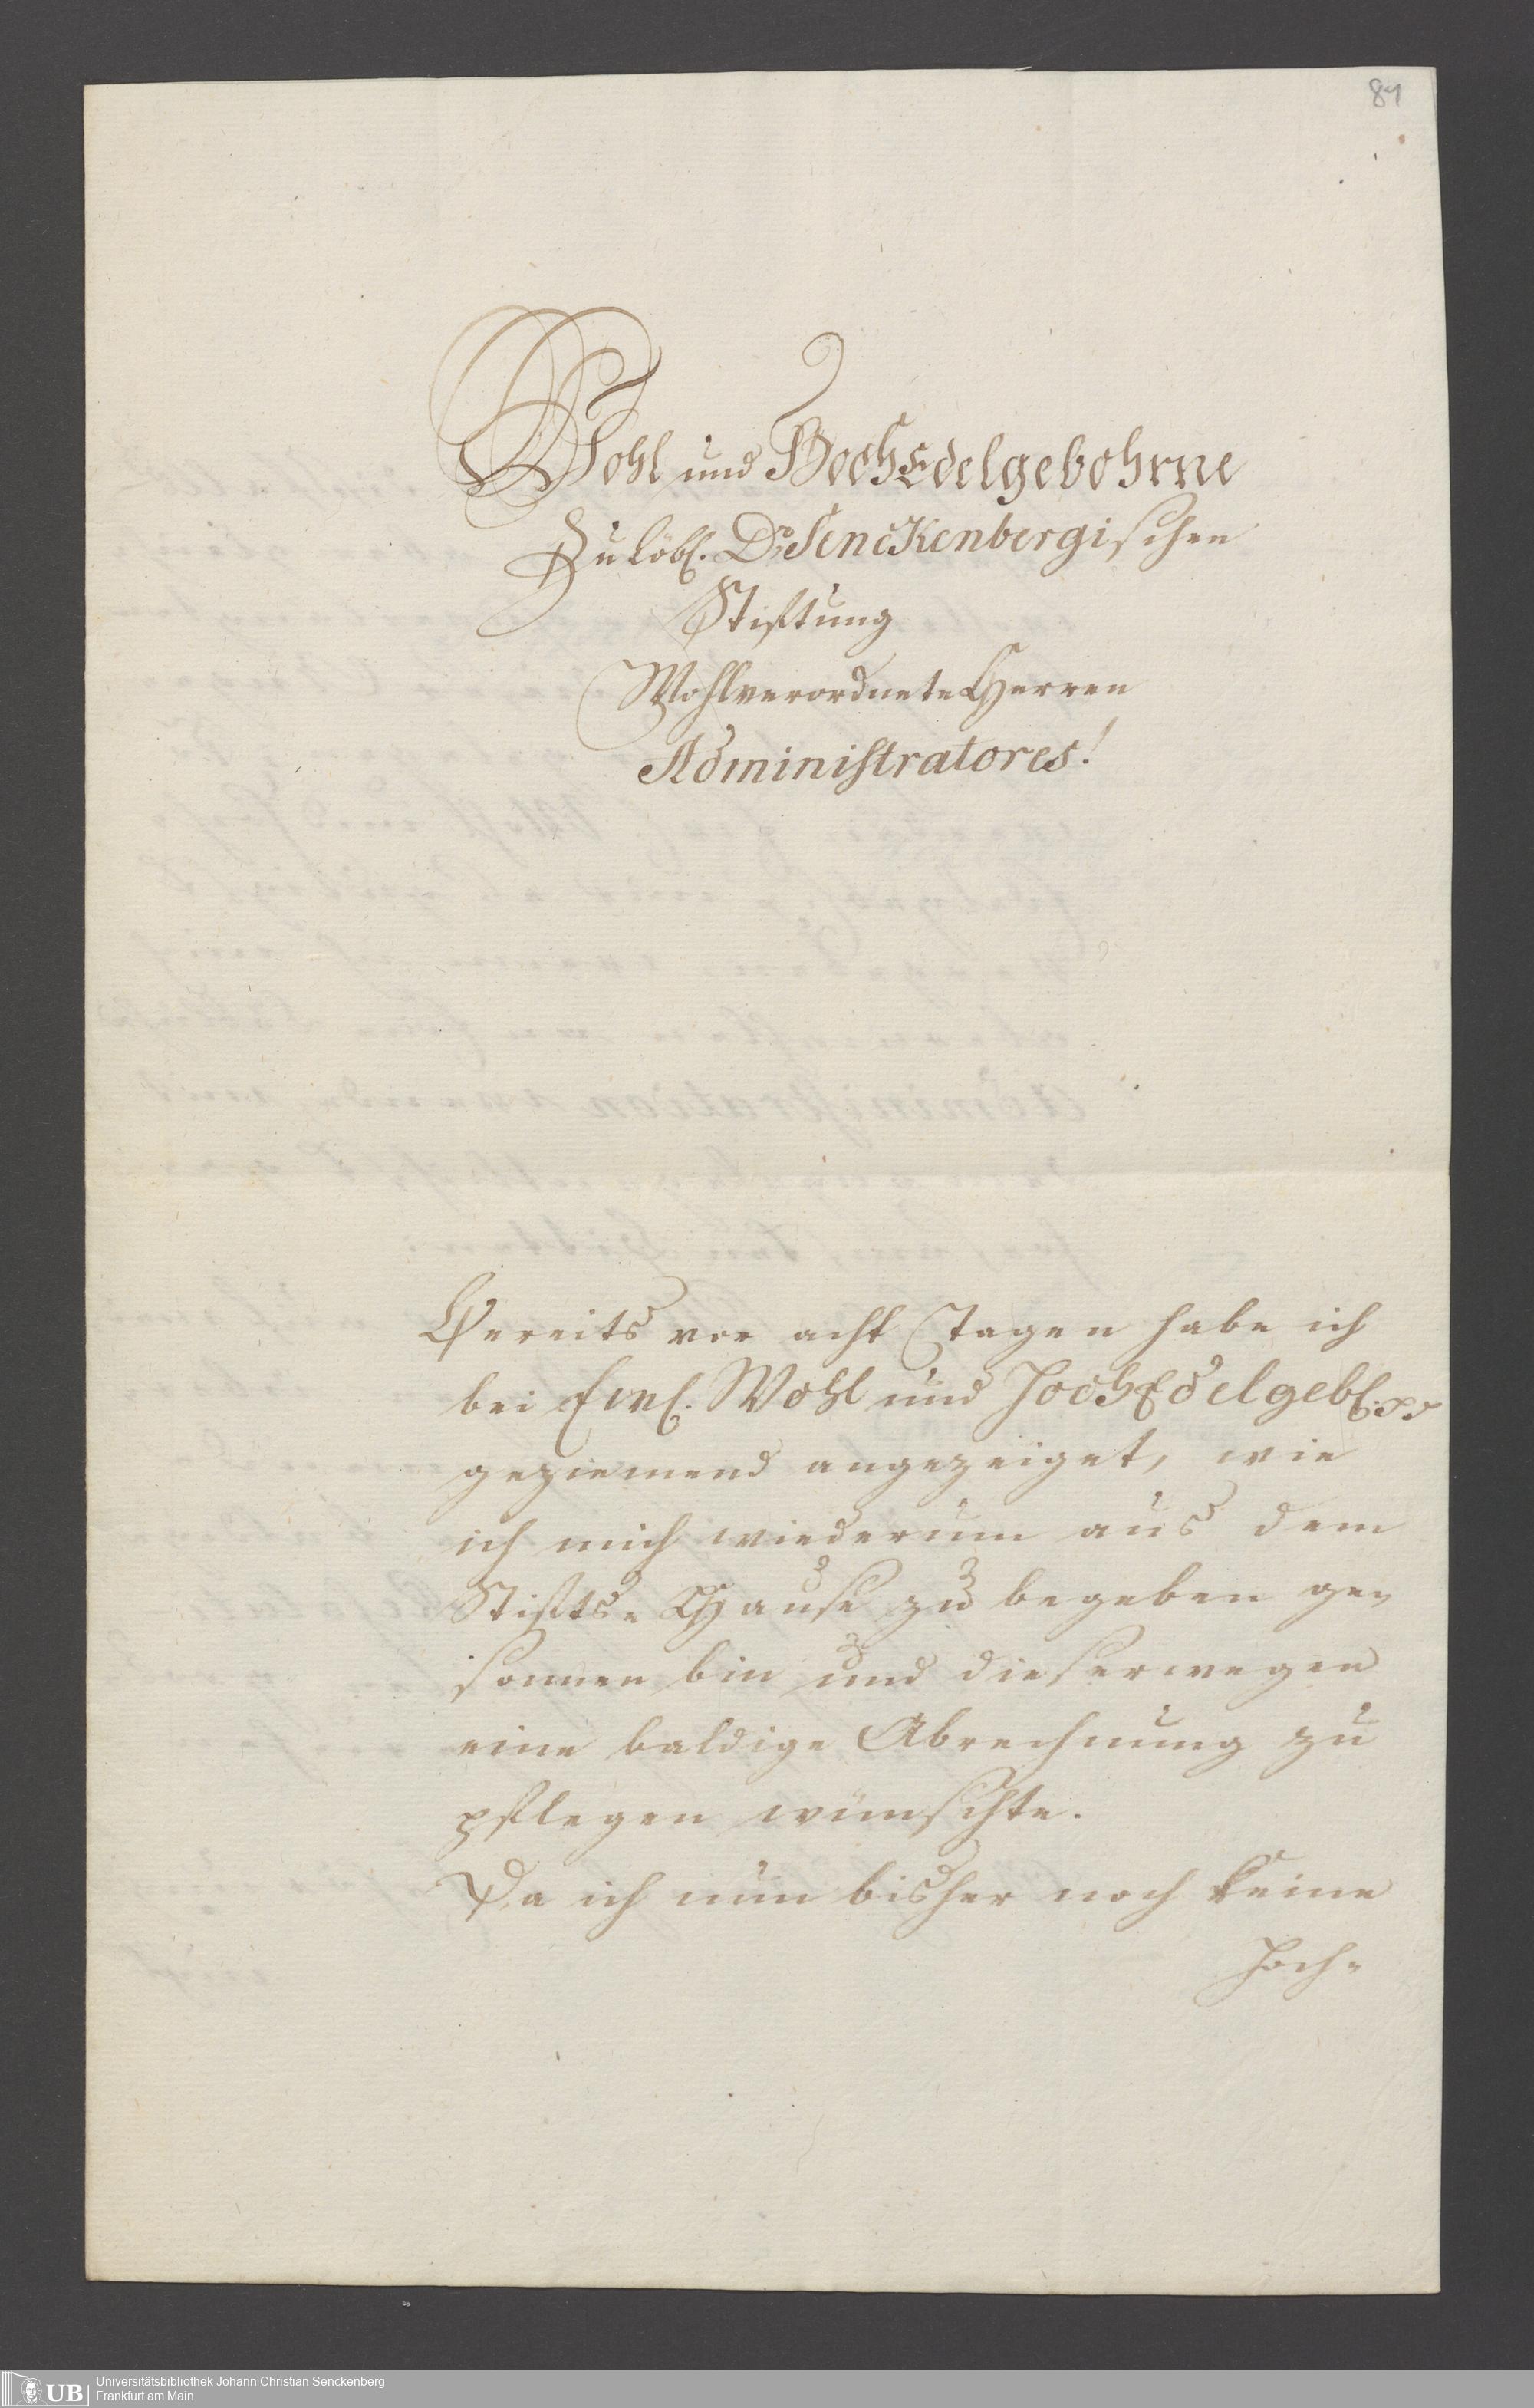 84
Wohl und HochEdelgebohrne
Zu Löbl. Dr. Senckenbergischen
Stiftung
Wohlverordnete Herren
Administratores!
Bereits vor acht Tagen habe ich
bei Ewl. Wohl und HochEdelgebl.
geziemend angezeiget, wie
ich mich wiederum aus dem
Stifts-Hause zu begeben ge-
sonnen bin und dieserwegen
eine baldige Abrechnung zu
pflegen wünschte.
Da ich nun bisher noch keine
Hoch-
UB Universitätsbibliothek Johann Christian Senckenberg
Frankfurt am Main